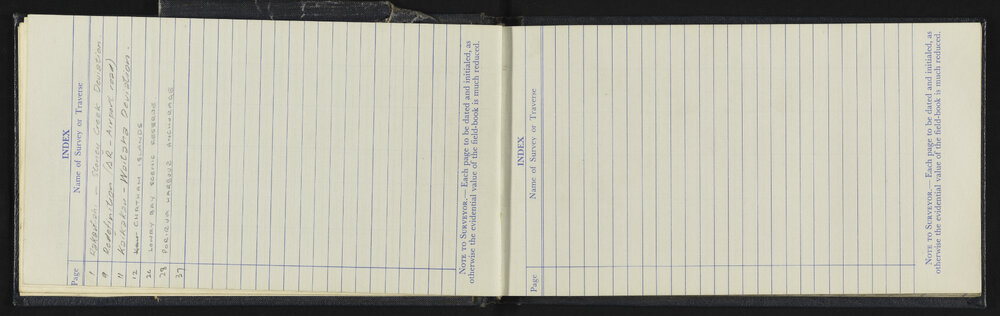 INDEX
Page Name of Survey or Traverse
1 - Stoney Creek Deviation.
9 Redefinition (S.R - Airport road)
11 Kaikakau - Waikato Deviation.
12 CHATHAM ISLANDS
26 LOWRY BAY SCENIC RESERVE
28 PORIRUA HARBOUR ANCHORAGE
37
NOTE TO SURVEYOR.— Each page to be dated and initialed, as
otherwise the evidential value of the field-book is much reduced.
INDEX
Page Name of Survey or Traverse
NOTE TO SURVEYOR.— Each page to be dated and initialed, as
otherwise the evidential value of the field-book is much reduced.